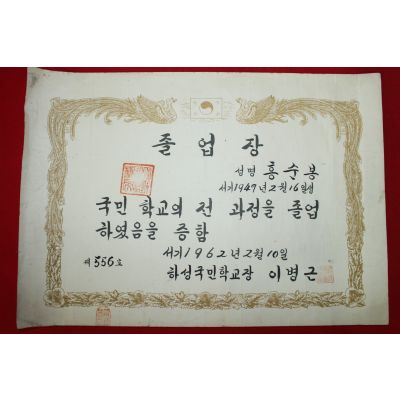 졸업장
성명 홍수봉
서기1947년2월16일생
국민 학교의 전 과정을 졸업
하였음을 증함
서기1962년2월10일
제556호
하성국민학교장 이병근